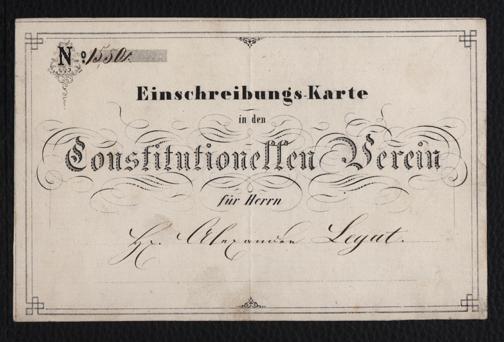 No. 1550.
Einschreibungs-Karte
in den
Constitutionellen Verein
für Herrn
Hr. Alexander Legat.